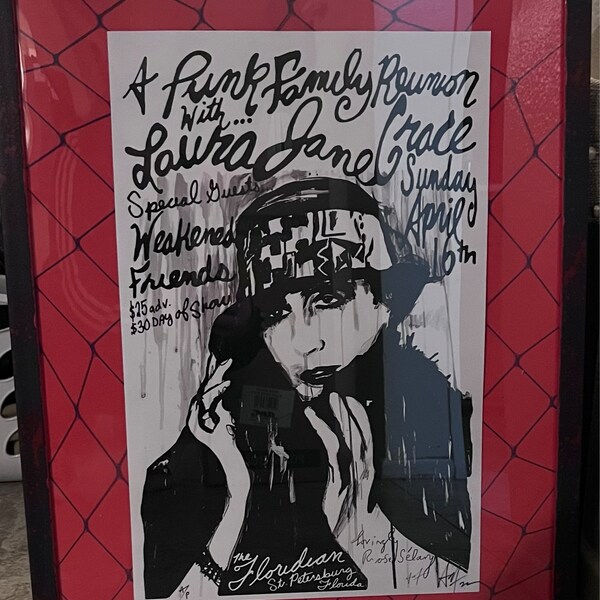 A Punk Family Reunion
With...
Laura Jane Grace
Special Guests...
Weakened
Friends
$25 adv.
$30 DAY of Show
Sunday
April
16th
The
Floridian
St. Petersburg
Florida
A/P
Lovingly
Rose Sélavy